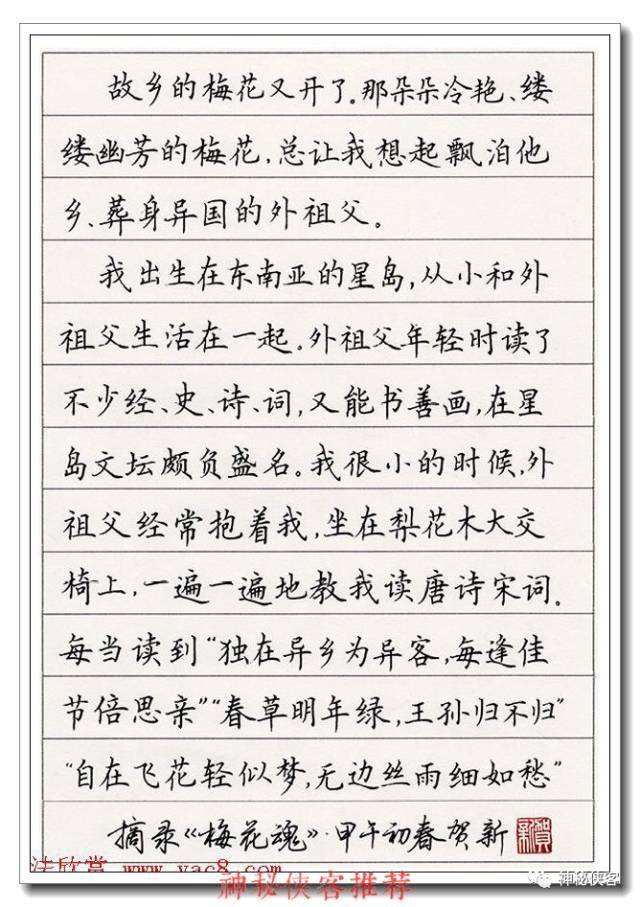 故乡的梅花又开了。那朵朵冷艳、缕
缕幽芳的梅花,总让我想起飘泊他
乡、葬身异国的外祖父。
我出生在东南亚的星岛,从小和外
祖父生活在一起。外祖父年轻时读了
不少经、史、诗、词,又能书善画,在星
岛文坛颇负盛名。我很小的时候,外
祖父经常抱着我,坐在梨花木大交
椅上,一遍一遍地教我读唐诗宋词。
每当读到“独在异乡为异客,每逢佳
节倍思亲”“春草明年绿,王孙归不归”
“自在飞花轻似梦,无边丝雨细如愁”
摘录《梅花魂》·甲午初春贺新
贺新
法欣赏 www.yac8.com
神秘侠客推荐
神秘侠客